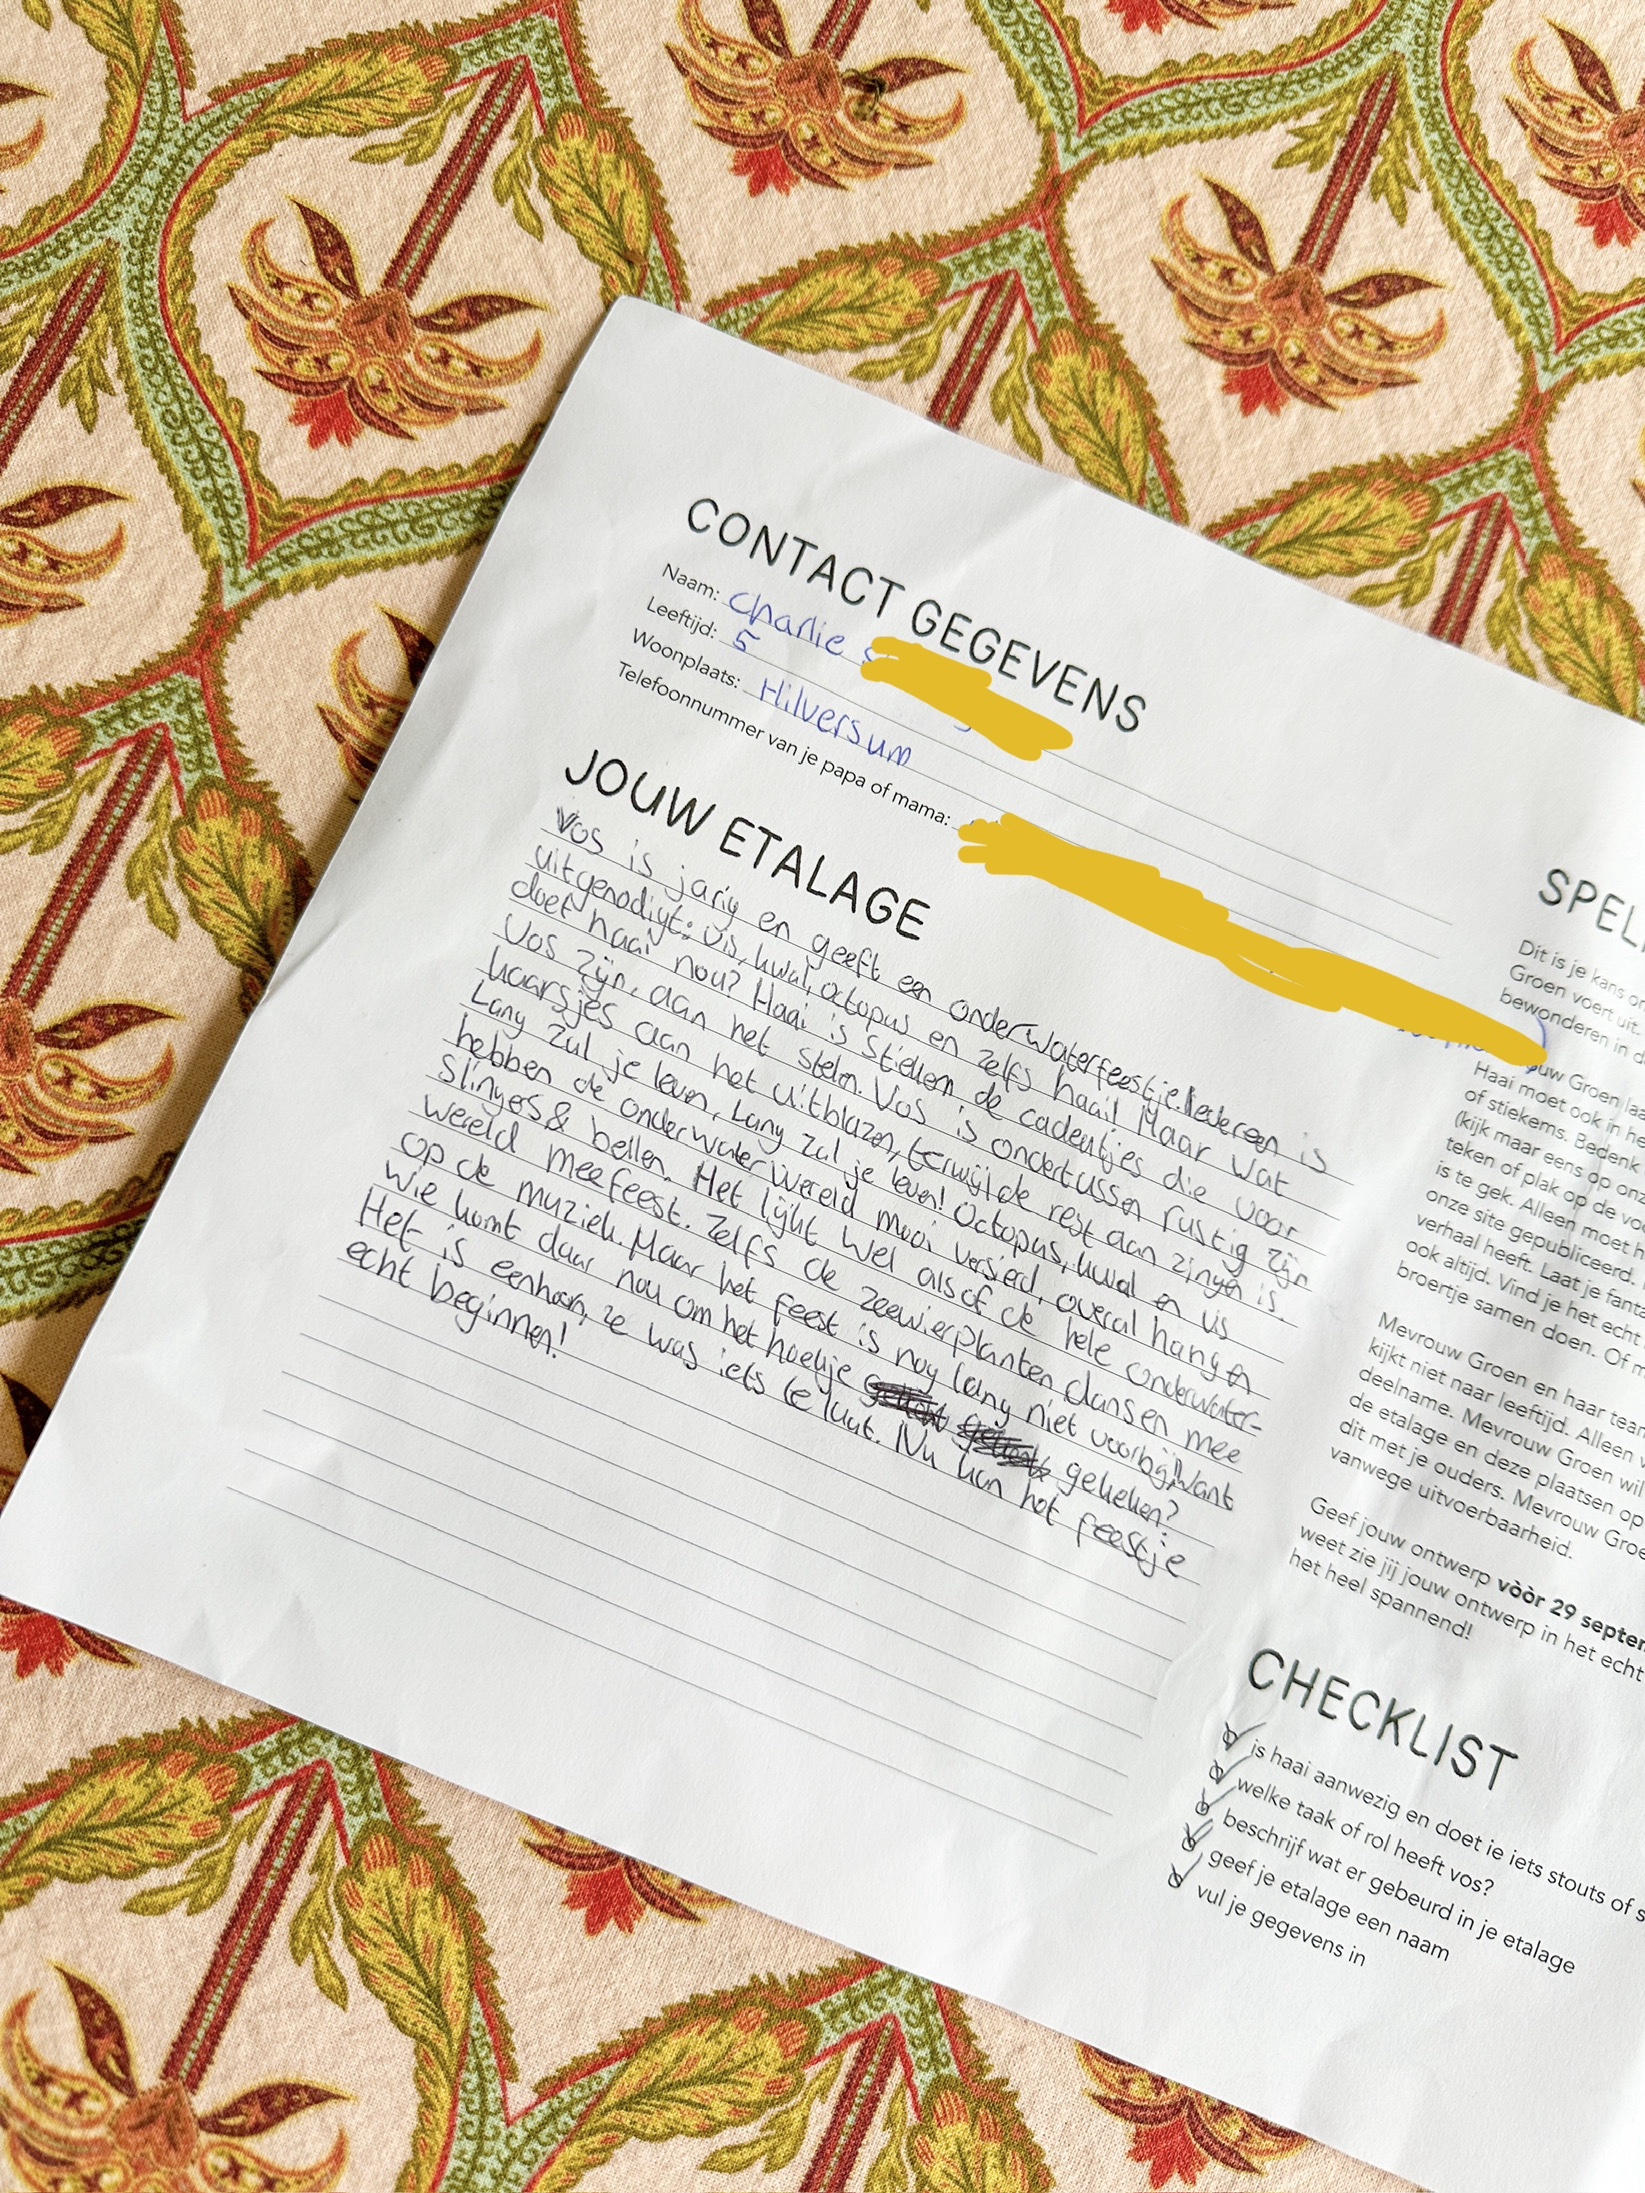 CONTACT GEGEVENS
Naam: Charlie S
Leeftijd: 5
Woonplaats: Hilversum
Telefoonnummer van je papa of mama:
JOUW ETALAGE
Vos is jarig en geeft een onderwaterfeestje. Iedereen is
uitgenodigt: vis, kwal, octopus en zelfs haai! Maar wat
doet haai nou? Haai is stiekem de cadeutjes die voor
Vos zijn, aan het stelen. Vos is ondertussen rustig zijn
kaarsjes aan het uitblazen, terwijl de rest aan zingen is.
Lang zul je leven, Lang zul je leven! Octopus, kwal en vis
hebben de onderwaterwereld mooi versierd, overal hangen
slingers & bellen. Het lijkt wel alsof de hele onderwater-
wereld meefeest. Zelfs de zeewierplanten dansen mee
op de muziek. Maar het feest is nog lang niet voorbij, want
wie komt daar nou om het hoekje gekeken?
Het is eenhoorn, ze was iets te laat. Nu kan het feestje
echt beginnen!
SPEL
Dit is je kans o
Groen voert uit.
bewonderen in d
uw Groen laa
Haai moet ook in he
of stiekems. Bedenk
(kijk maar eens op onz
teken of plak op de vo
is te gek. Alleen moet h
onze site gepubliceerd.
verhaal heeft. Laat je fanta
ook altijd. Vind je het echt
broertje samen doen. Of m
Mevrouw Groen en haar tea
kijkt niet naar leeftijd. Alleen
deelname. Mevrouw Groen wil
de etalage en deze plaatsen op
dit met je ouders. Mevrouw Groe
vanwege uitvoerbaarheid.
Geef jouw ontwerp vòòr 29 septe
weet zie jij jouw ontwerp in het echt
het heel spannend!
CHECKLIST
is haai aanwezig en doet ie iets stouts of s
welke taak of rol heeft vos?
beschrijf wat er gebeurd in je etalage
geef je etalage een naam
vul je gegevens in